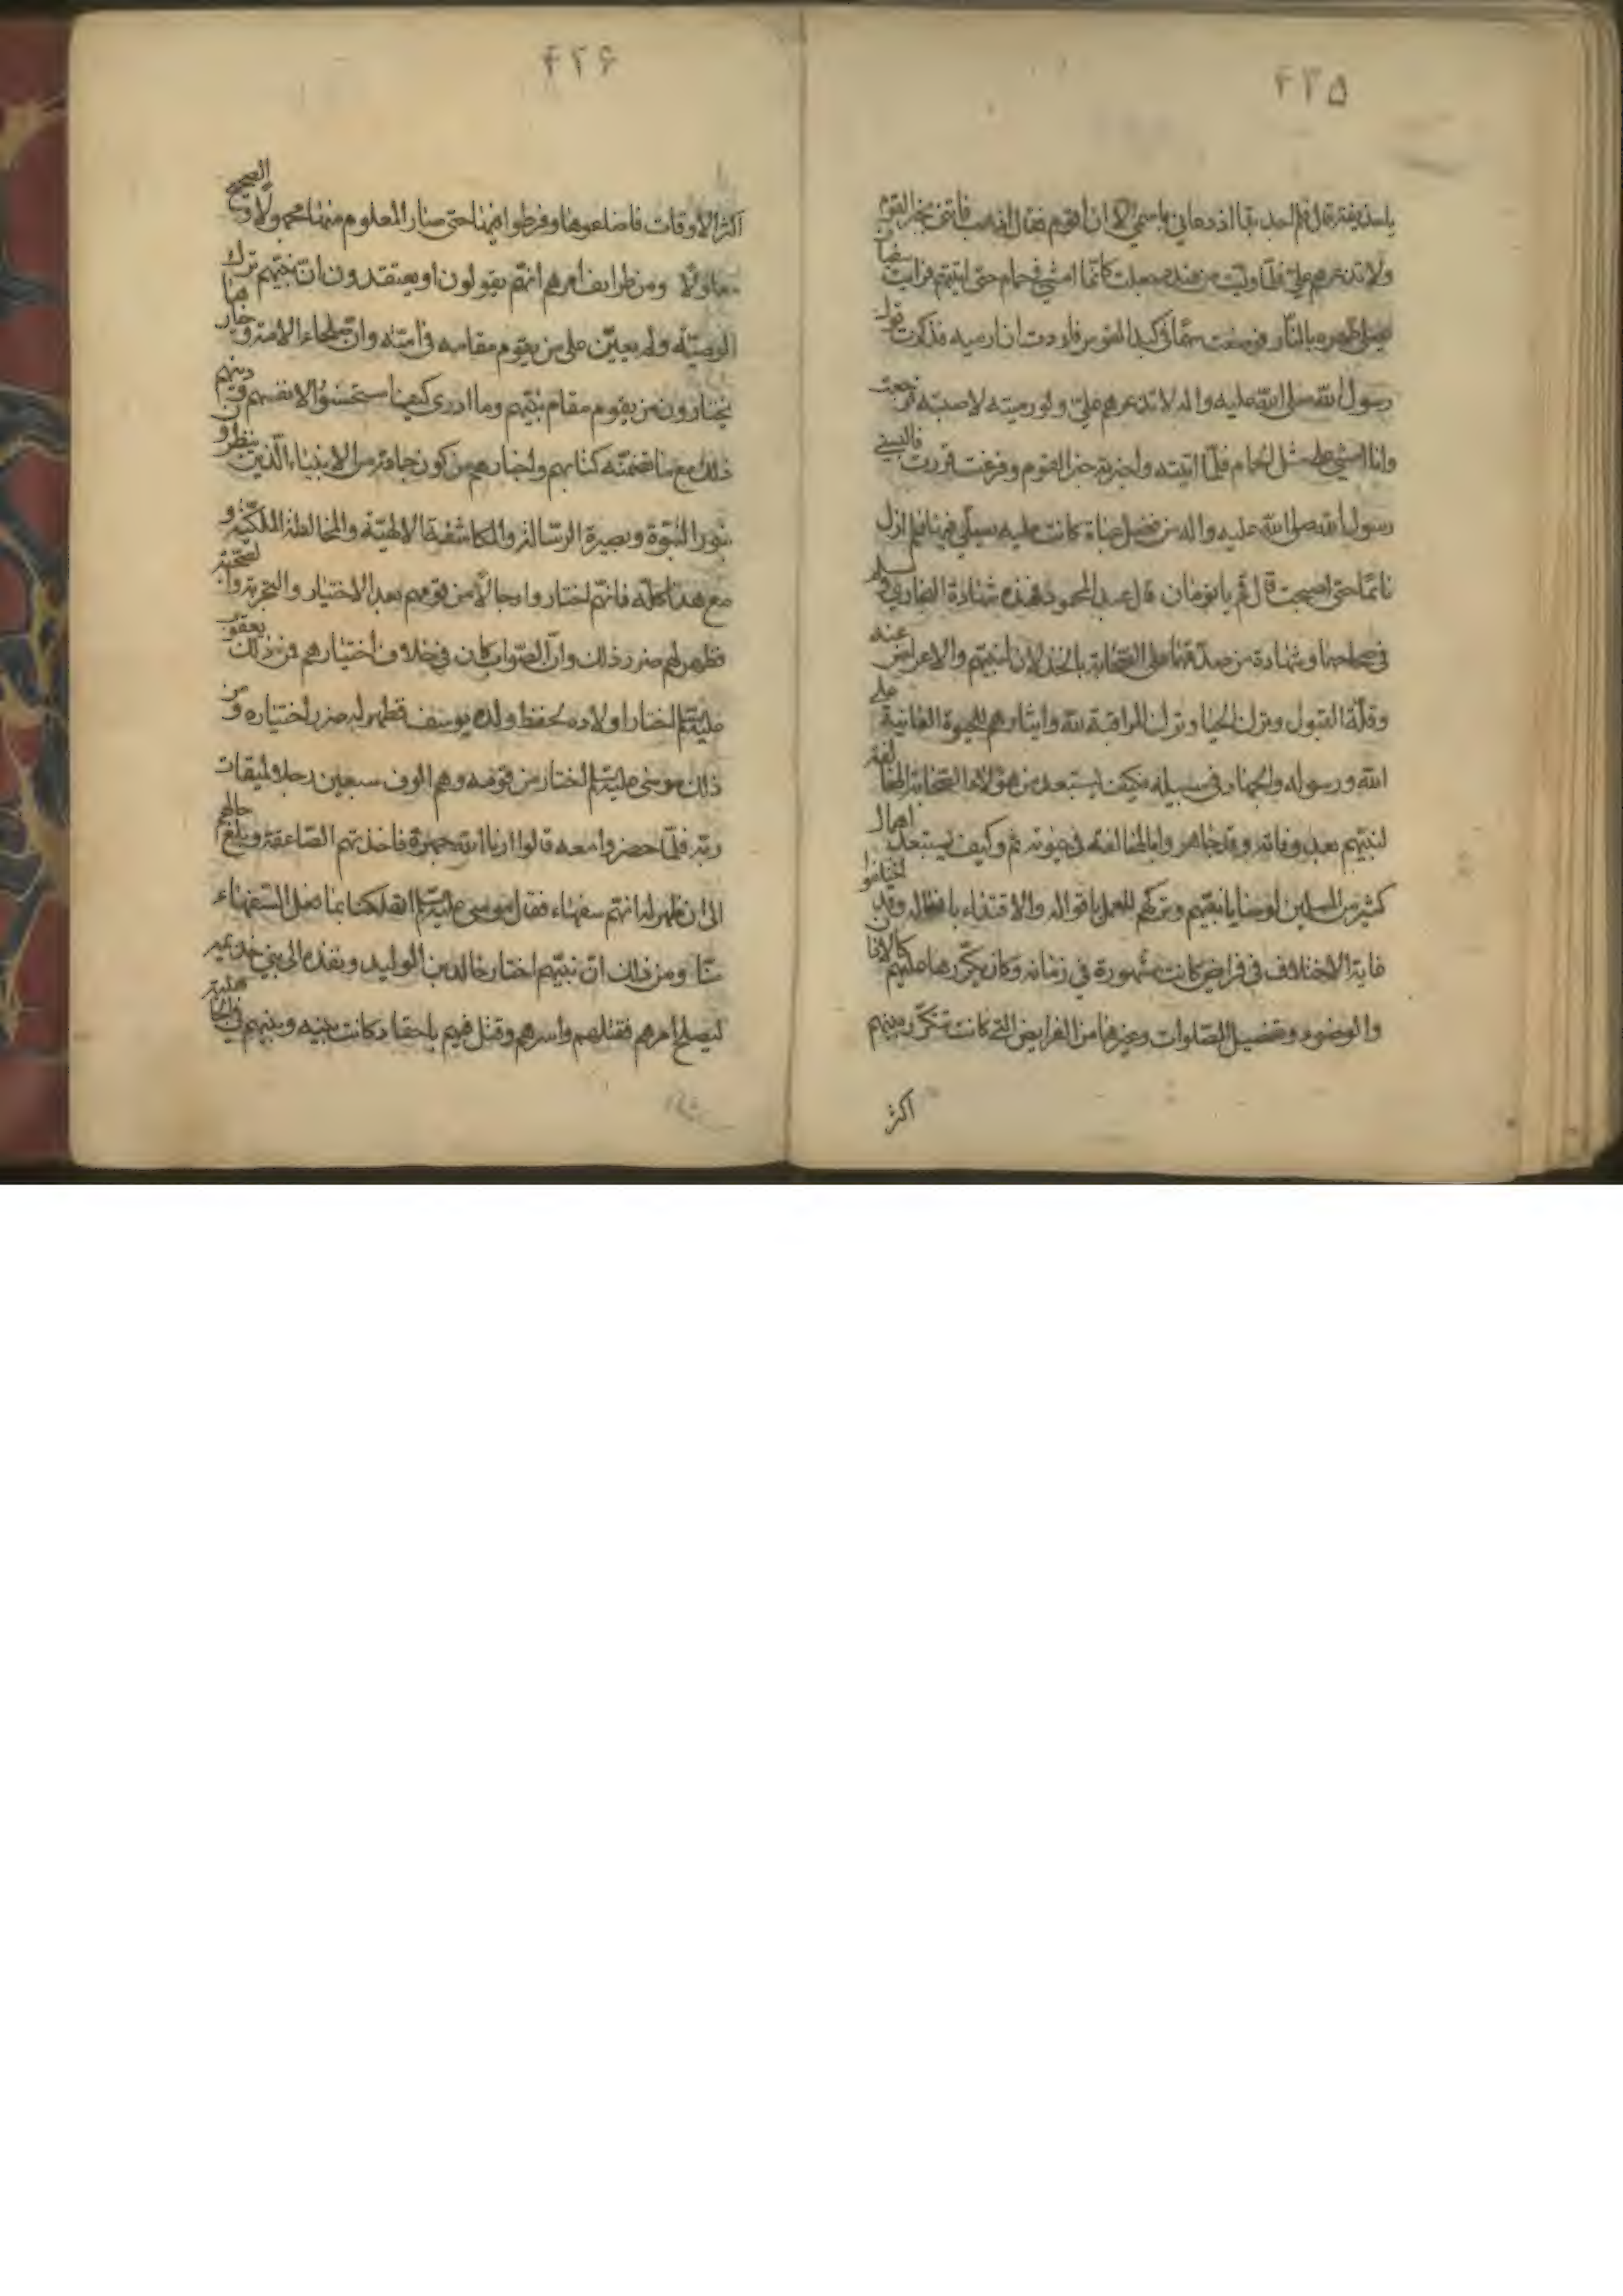 ۴۲۵
يا حذيفة قال فلم اجد بدا اذ دعاني باسمي الا ان اقوم فقال اذهب فاتني بخبر القوم
ولا تذعرهم علي فلما وليت من عنده جعلت كانما امشي في حمام حتى اتيتهم فرايت ابا سفيان
يصلي ظهره بالنار فوضعت سهما في كبد القوس فاردت ان ارميه فذكرت قول
رسول الله صلى الله عليه واله لا تذعرهم علي ولو رميته لاصبته فرجعت
وانا امشي على مثل الحمام فلما اتيته واخبرته خبر القوم وفرغت قررت فالبسني
رسول الله صلى الله عليه واله من فضل عباة كانت عليه يصلي فيها فلم ازل
نائما حتى اصبحت قال قم يا نومان قال عبد المحمود فهذه شهادة البخاري ومسلم
في صحاحهما وشهادة من صدقهما على الصحابة بالخذلان لنبيهم والاعراض عنه
وقلة القبول وترك الحيا وترك المراقبة لله وايثارهم للحيوة الفانية على
الله ورسوله والجهاد في سبيله فكيف يستبعد من هؤلاء الصحابة المخالفة
لنبيهم بعد وفاته وقد جاهروا بالمخالفة في حيوته ثم وكيف يستبعد اهمال
كثير من المسلمين لوصايا نبيهم وتركهم للعمل باقواله والاقتداء بافعاله وقد اختلفوا
غاية الاختلاف في فرايض كانت مشهورة في زمانه وكان يكررها عليهم كالاذان
والوضوء وتفصيل الصلوات وغيرها من الفرايض التي كانت تتكرر بينهم
اكثر
۴۲۶
اكثر الاوقات فاضاعوها وفرطوا فيها حتى صار المعلوم منها مجهولا والصحيح
معلولا ومن طرايف امرهم انهم يقولون او يعتقدون ان نبيهم ترك
الوصية ولم يعين على من يقوم مقامه في امته وان صلحاء الامة وخيارها
يختارون من يقوم مقام نبيهم وما ادري كيف استحسنوا لانفسهم ودينهم
ذلك مع ما تضمنه كتابهم واخبارهم من كون جماعة من الانبياء الذين ينظرون
بنور النبوة وبصيرة الرسالة والمكاشفة الالهية والمخالطة الملكية و
مع هذا كله فانهم اختاروا رجالا من قومهم بعد الاختيار والتجربة والصحبة
فظهر لهم ضرر ذلك وان الصواب كان في خلاف اختيارهم فمن ذلك يعقوب
عليه السلم اختار اولاده لحفظ ولده يوسف فظهر له ضرر اختياره ومن
ذلك موسى عليه السلم اختار من قومه وهم الوف سبعين رجلا لميقات
ربه فلما حضروا معه قالوا ارنا الله جهرة فاخذتهم الصاعقة وبلغ حالهم
الى ان ظهر له انهم سفهاء فقال موسى عليه السلم اتهلكنا بما فعل السفهاء
منا ومن ذلك ان نبيهم اختار خالد بن الوليد ونفذه الى بني خذيمة
ليصلح امرهم فقتلهم واسرهم وقتل فيهم باحقاد كانت بينه وبينهم في الجاهلية